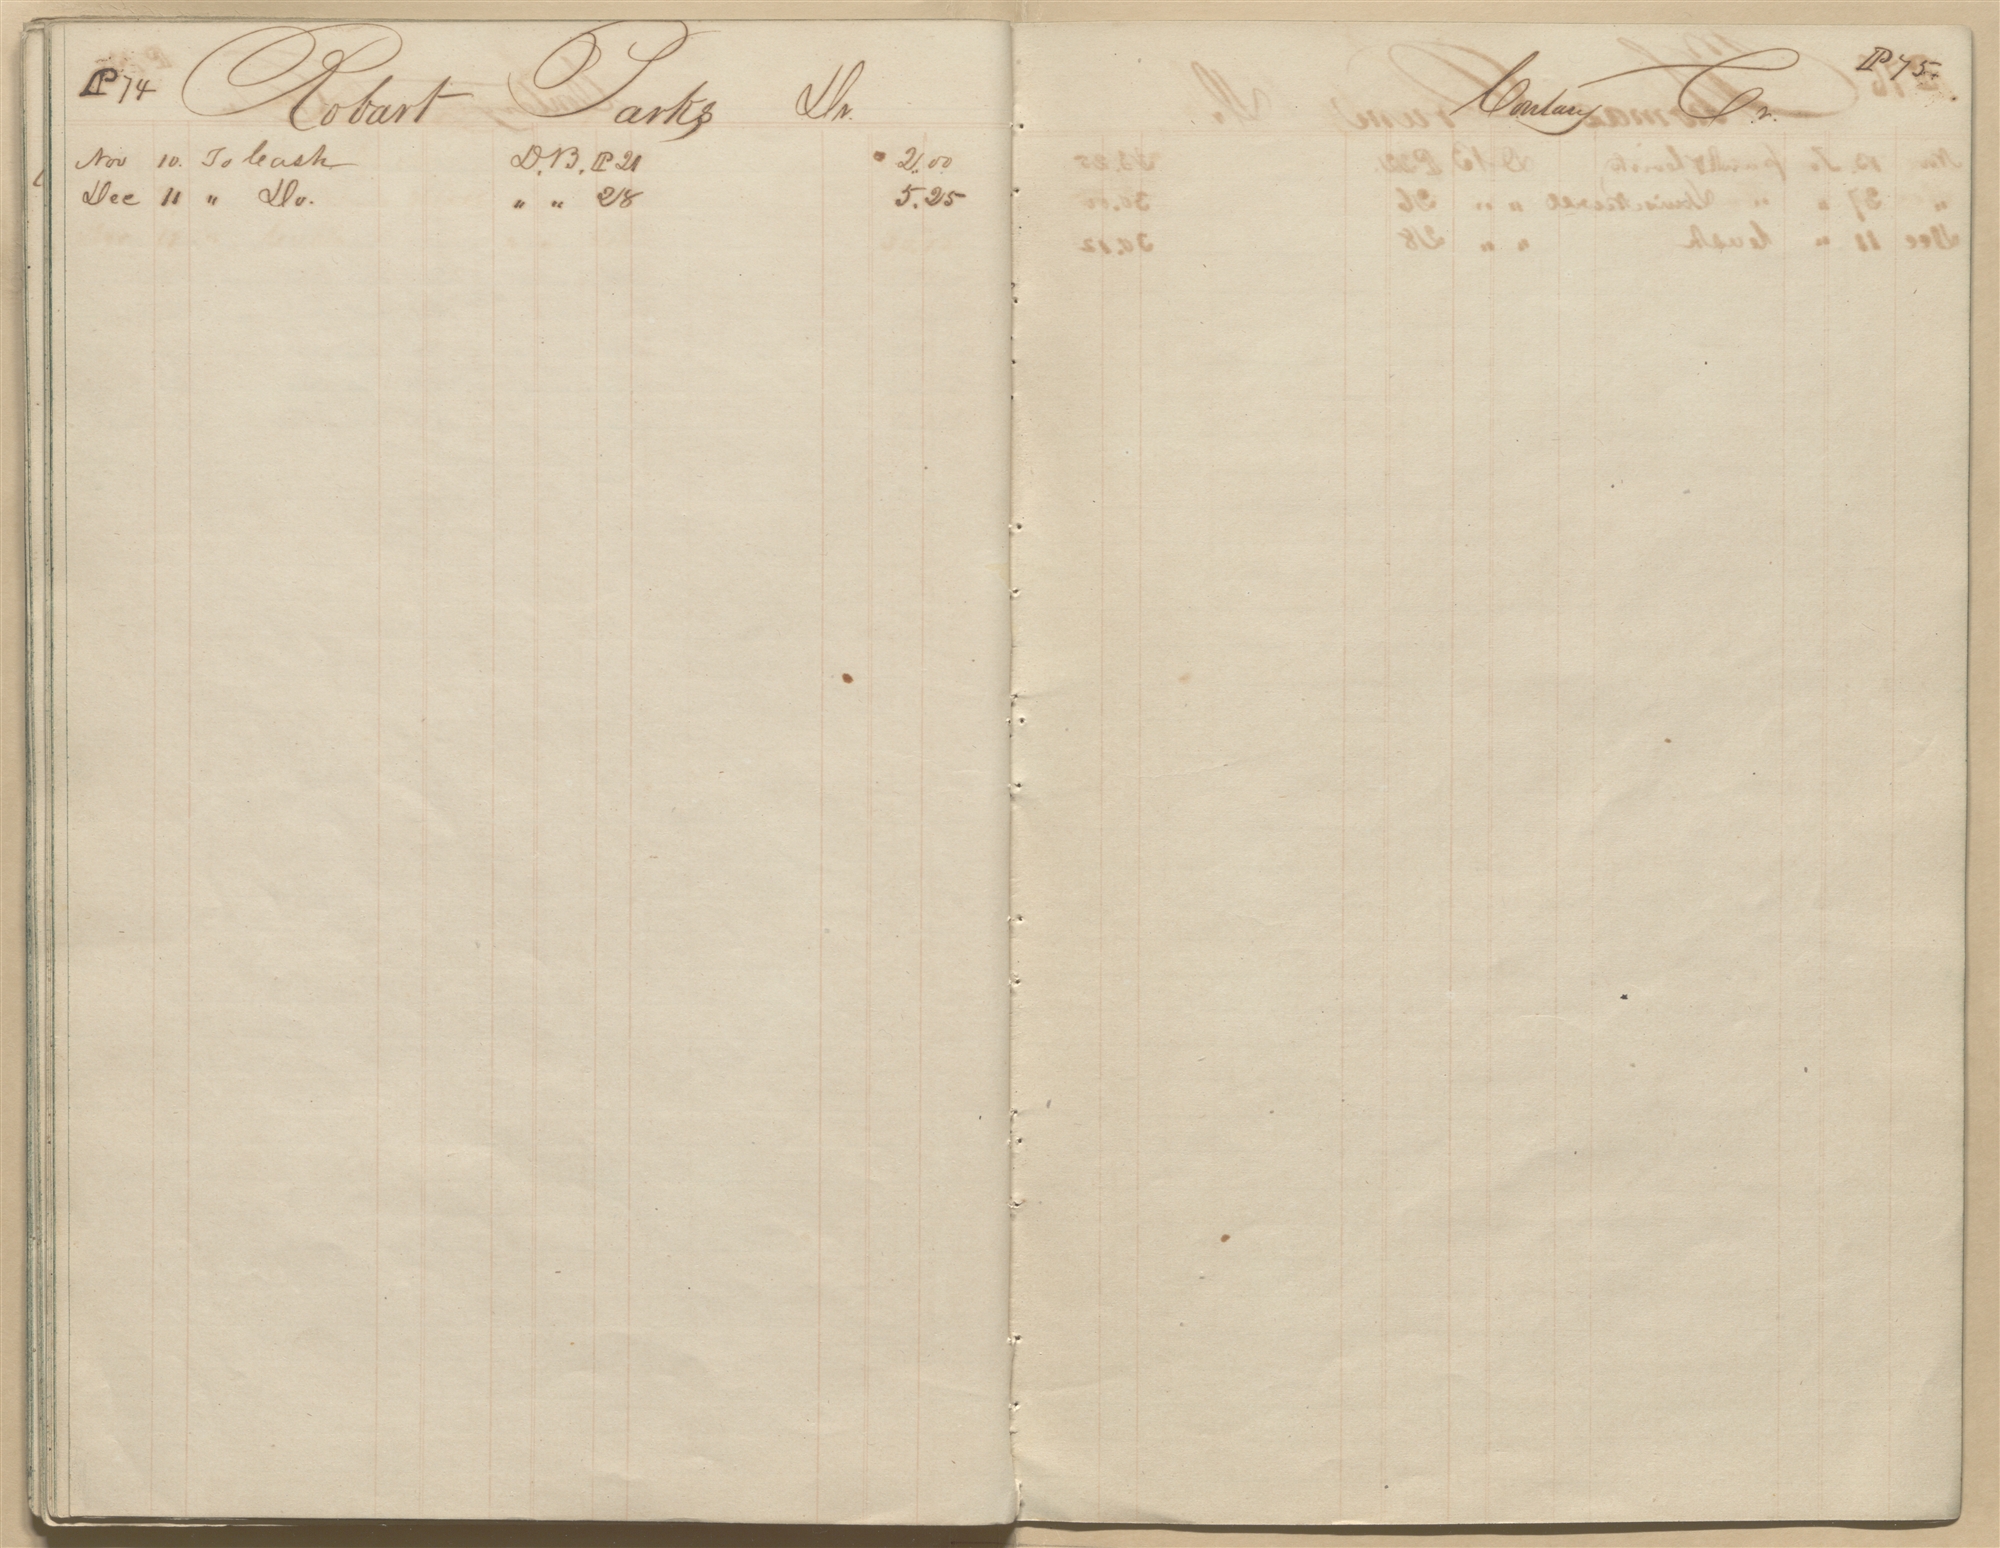 P 74 Robart Parks Dr.
Nov 10. To Cash D.B. P 21 2.00
Dec 11 " Do. " " 28 5.25
P 75.
Contary Cr.